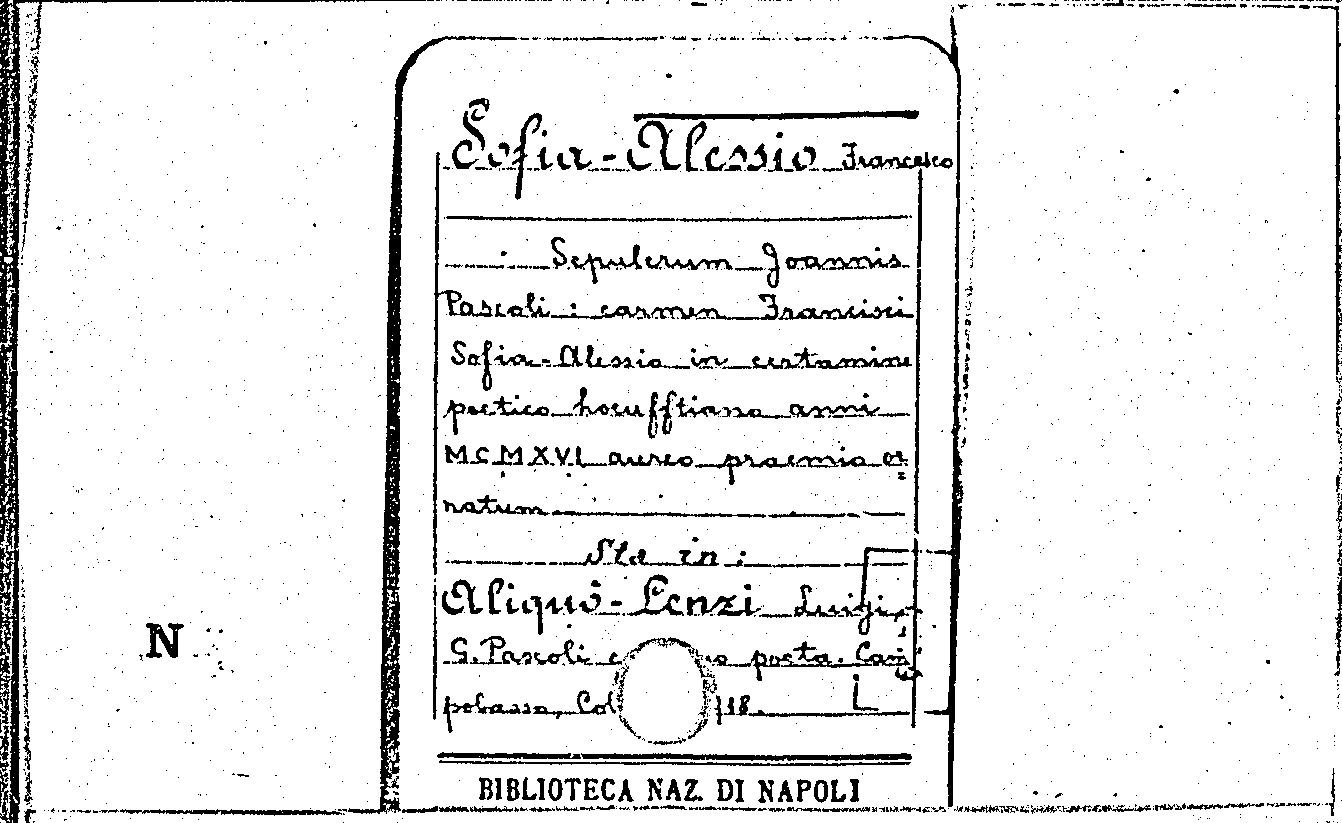 Sofia-Alessio Francesco
Sepulcrum Joannis
Pascoli: carmen Francisci
Sofia-Alessio in certamine
poetico hoeufftiano anni
MCMXVI aureo praemio or=
natum
Sta in:
Aliquò-Lenzi Luigi,
G. Pascoli poeta. Cam=
pobasso, Col 18.
N
BIBLIOTECA NAZ. DI NAPOLI